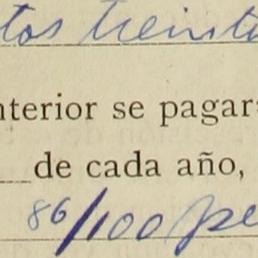 tos treinta
nterior se pagar
de cada año,
86/100 pe